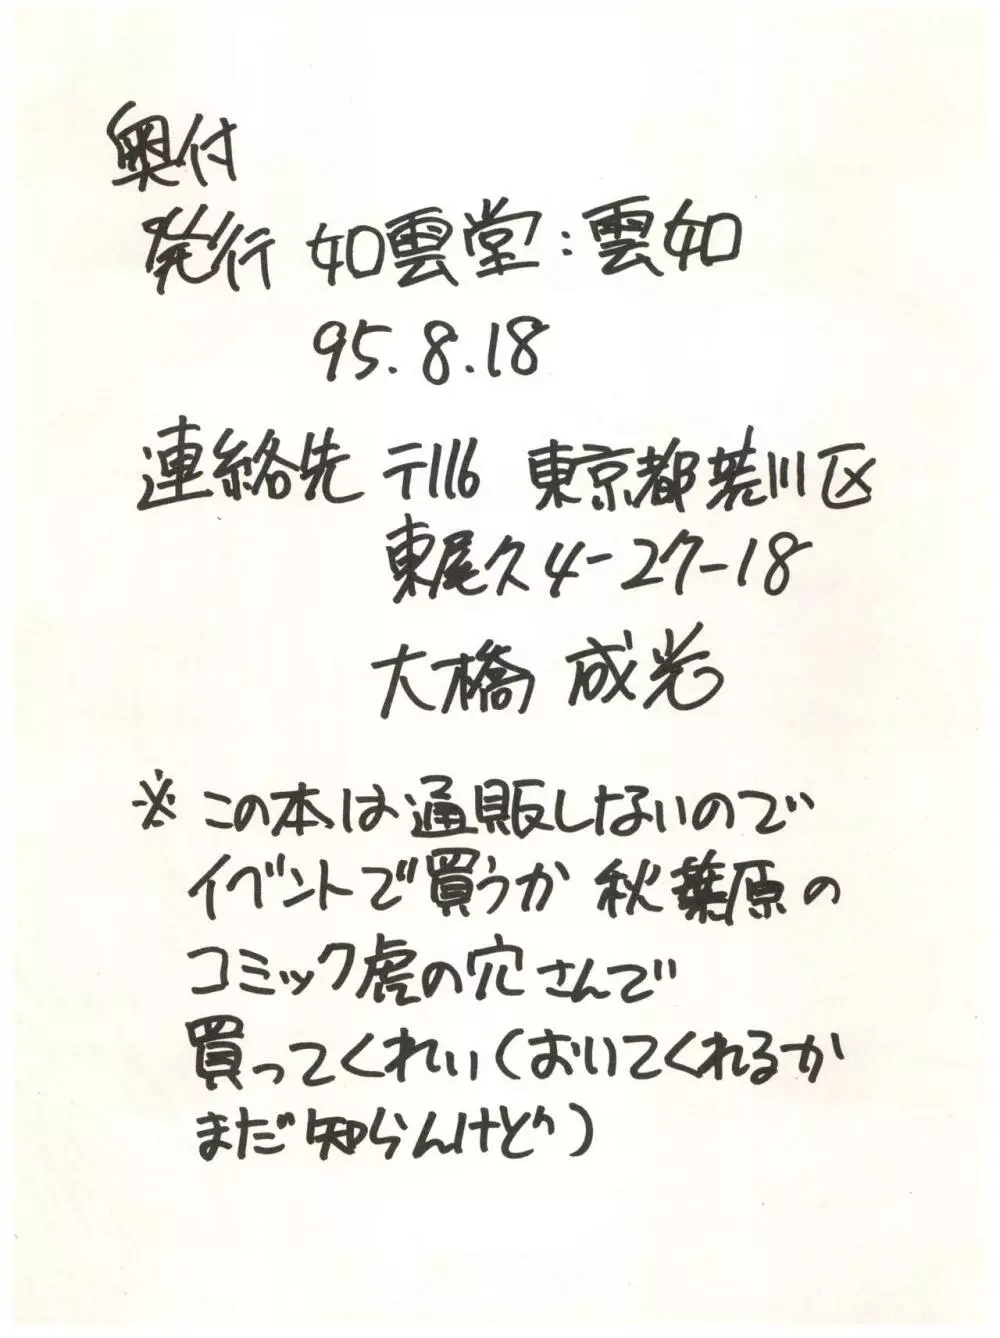 奥付
発行 如雲堂:雲如
95.8.18
連絡先 〒116 東京都荒川区
東尾久4-27-18
大橋 成光
※この本は通販しないので
イベントで買うか 秋葉原の
コミック虎の穴さんで
買ってくれい(おいてくれるか
まだ知らんけど)